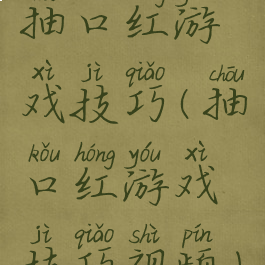 抽口红游
xì jì qiǎo chōu
戏技巧(抽
kǒu hóng yóu xì
口红游戏
jì qiǎo shì pín
技巧视频)